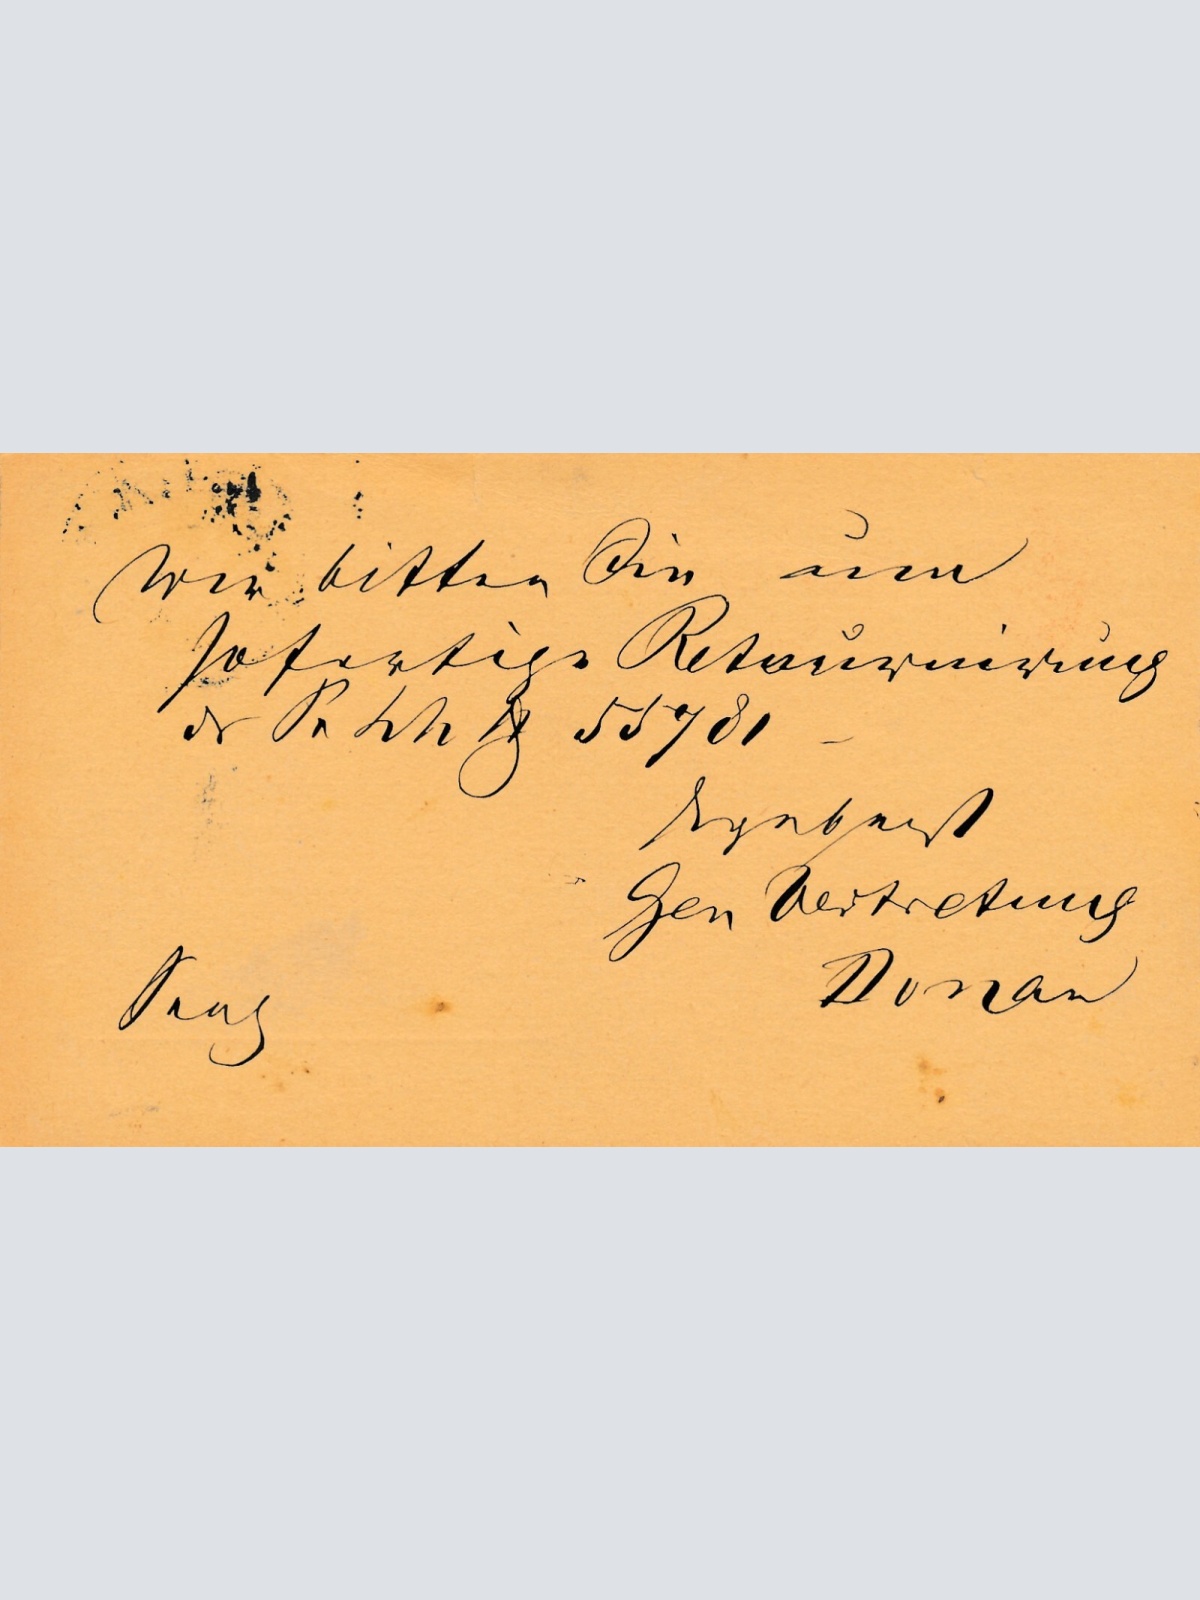 Wir bitten Sie um
sofortige Retournirung
der 55781 –
Ergebenst
Gen Vertretung
Donau
Prag